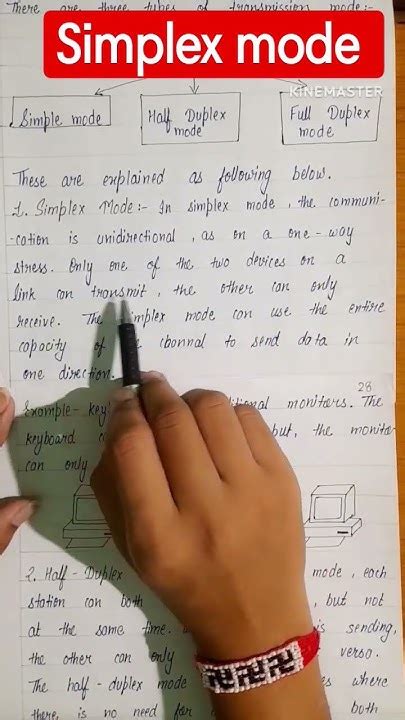 There are three types of transmission mode:-
Simplex mode
KINEMASTER
Simple mode
Half Duplex
mode
Full Duplex
mode
These are explained as following below.
1. Simplex Mode:- In simplex mode, the communi-
-cation is unidirectional, as on a one-way
stress. Only one of the two devices on a
link can transmit, the other can only
receive. The simplex mode can use the entire
capacity of cbannal to send data in
one direction.
28
Example- ditional monitors. The
keyboard but, the monitor
can only
2. Half-Duplex mode, each
station can both , but not
at the same time. is sending,
the other can only versa.
The half-duplex mode where
there is no need for both